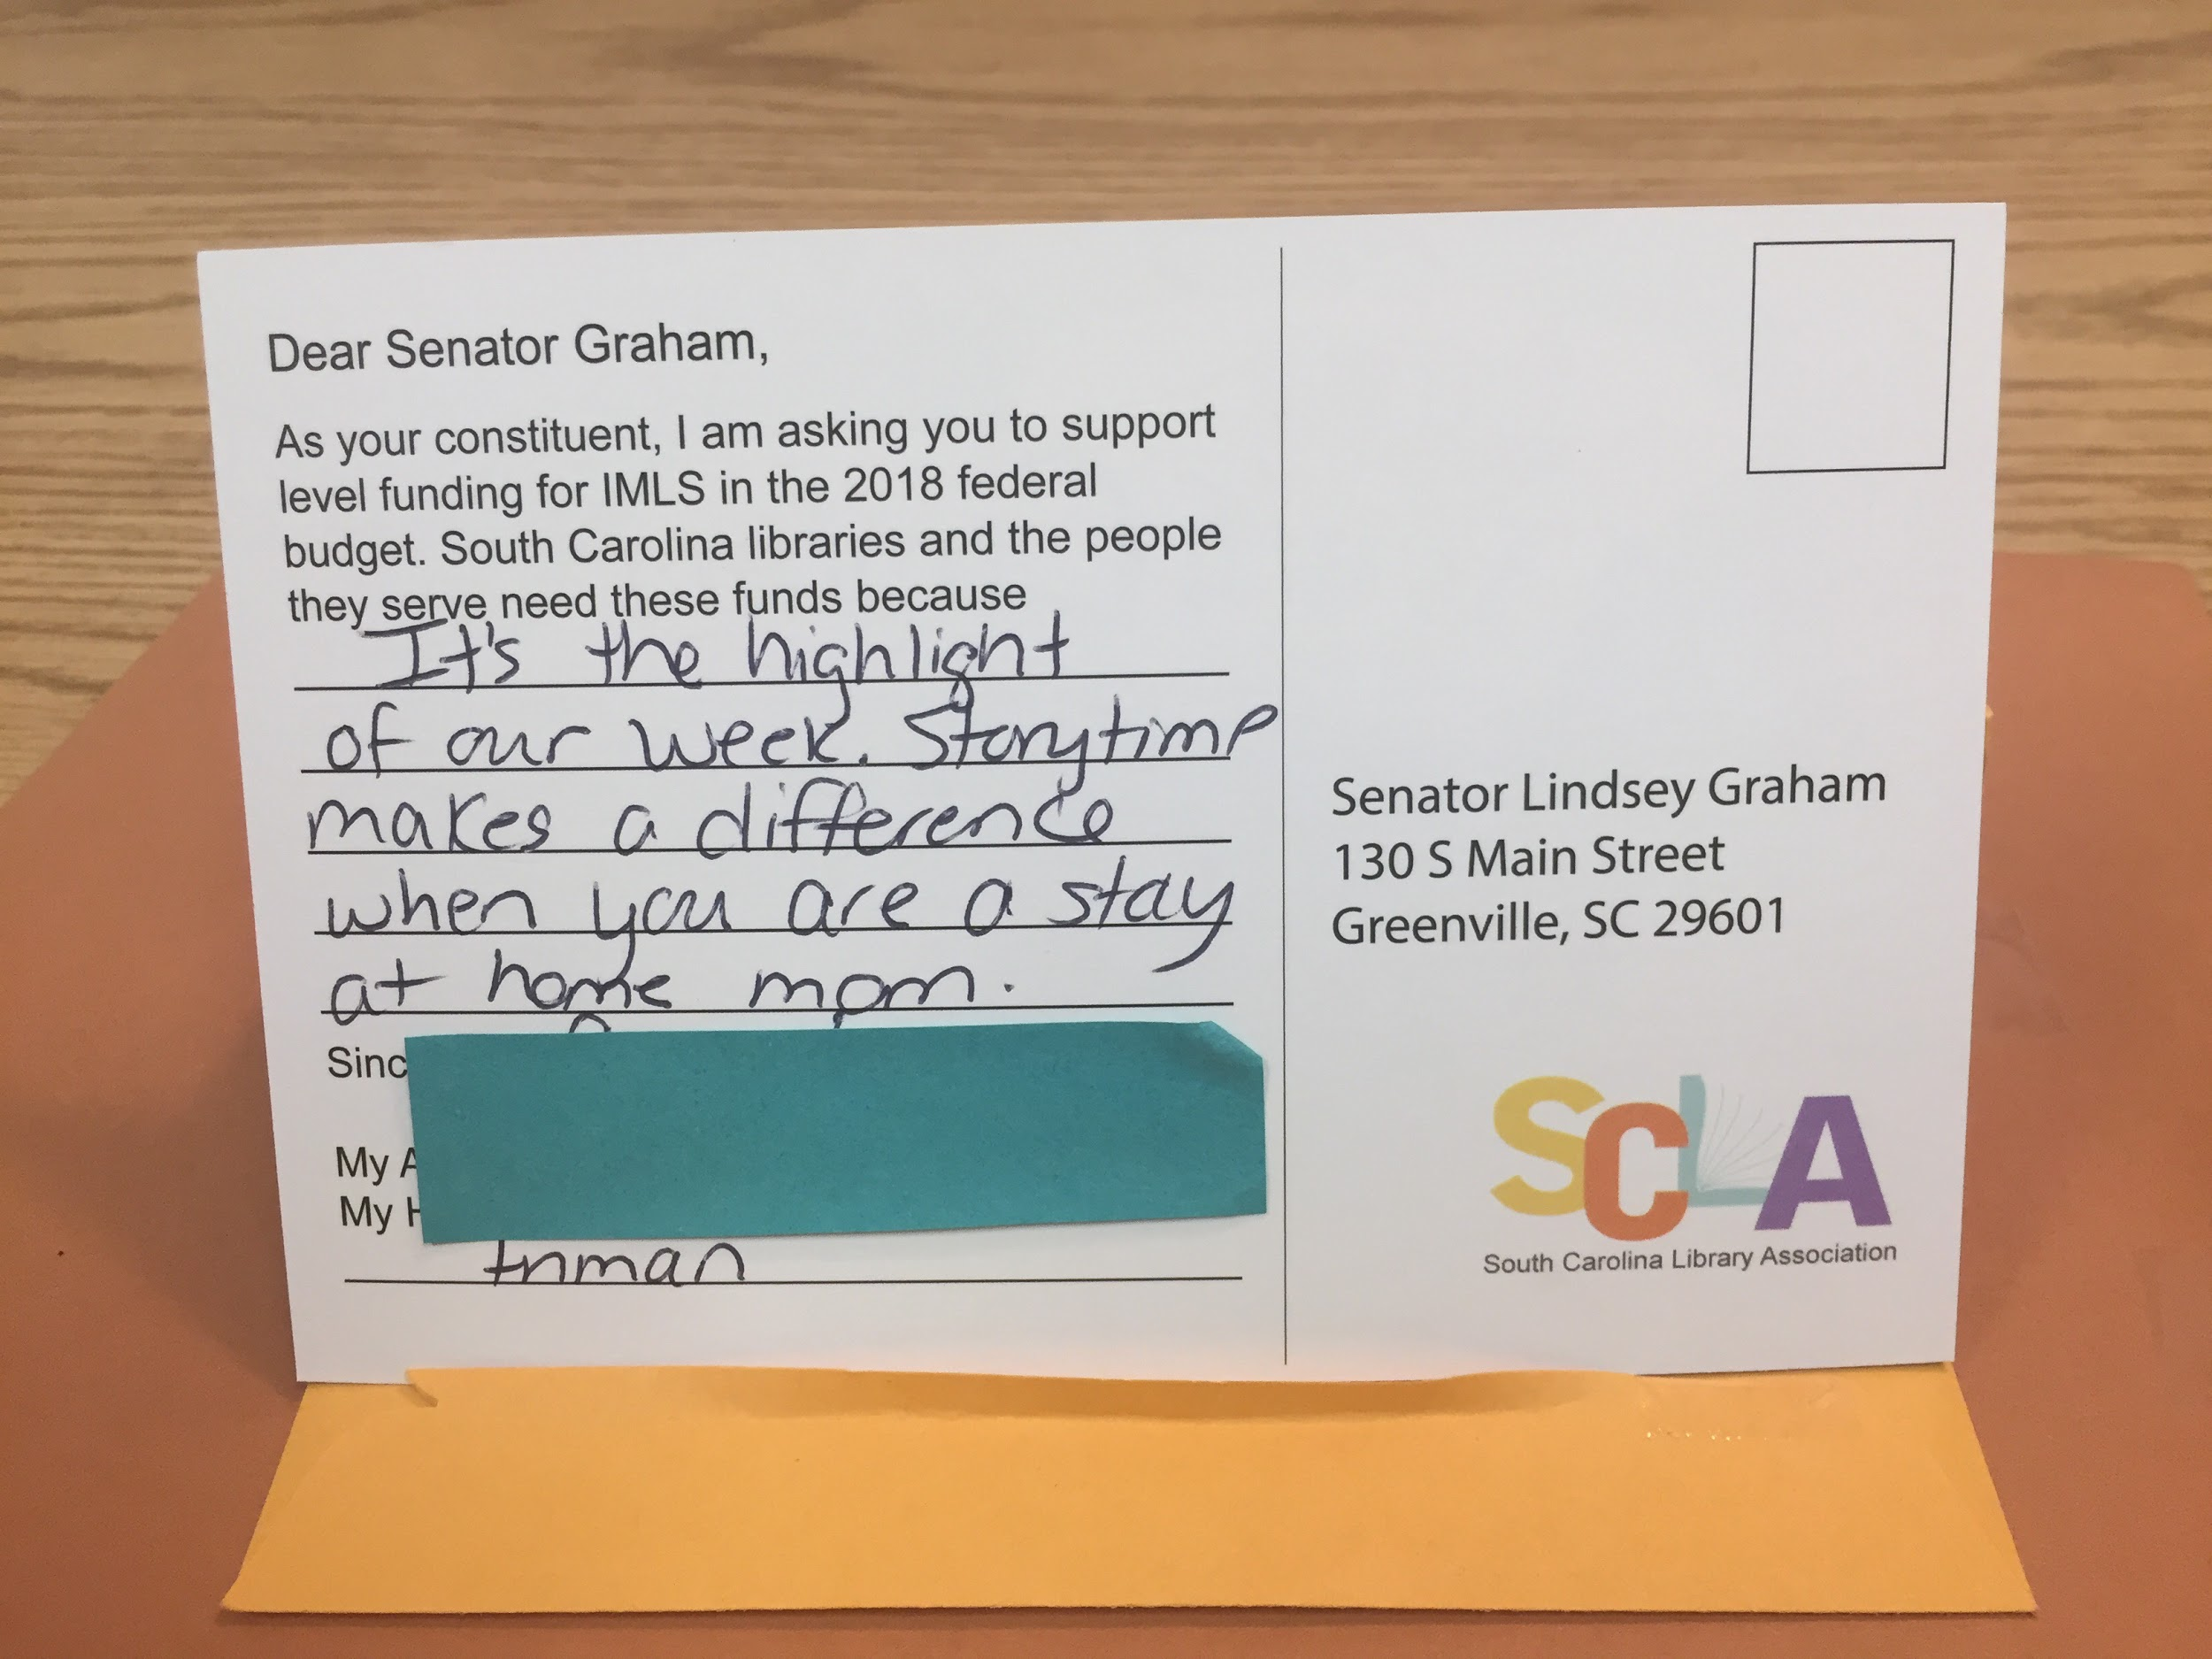 Dear Senator Graham,
As your constituent, I am asking you to support
level funding for IMLS in the 2018 federal
budget. South Carolina libraries and the people
they serve need these funds because
It's the highlight
of our week. Storytime
makes a difference
when you are a stay
at home mom.
Sinc
My A
My H
Inman
Senator Lindsey Graham
130 S Main Street
Greenville, SC 29601
SCLA
South Carolina Library Association